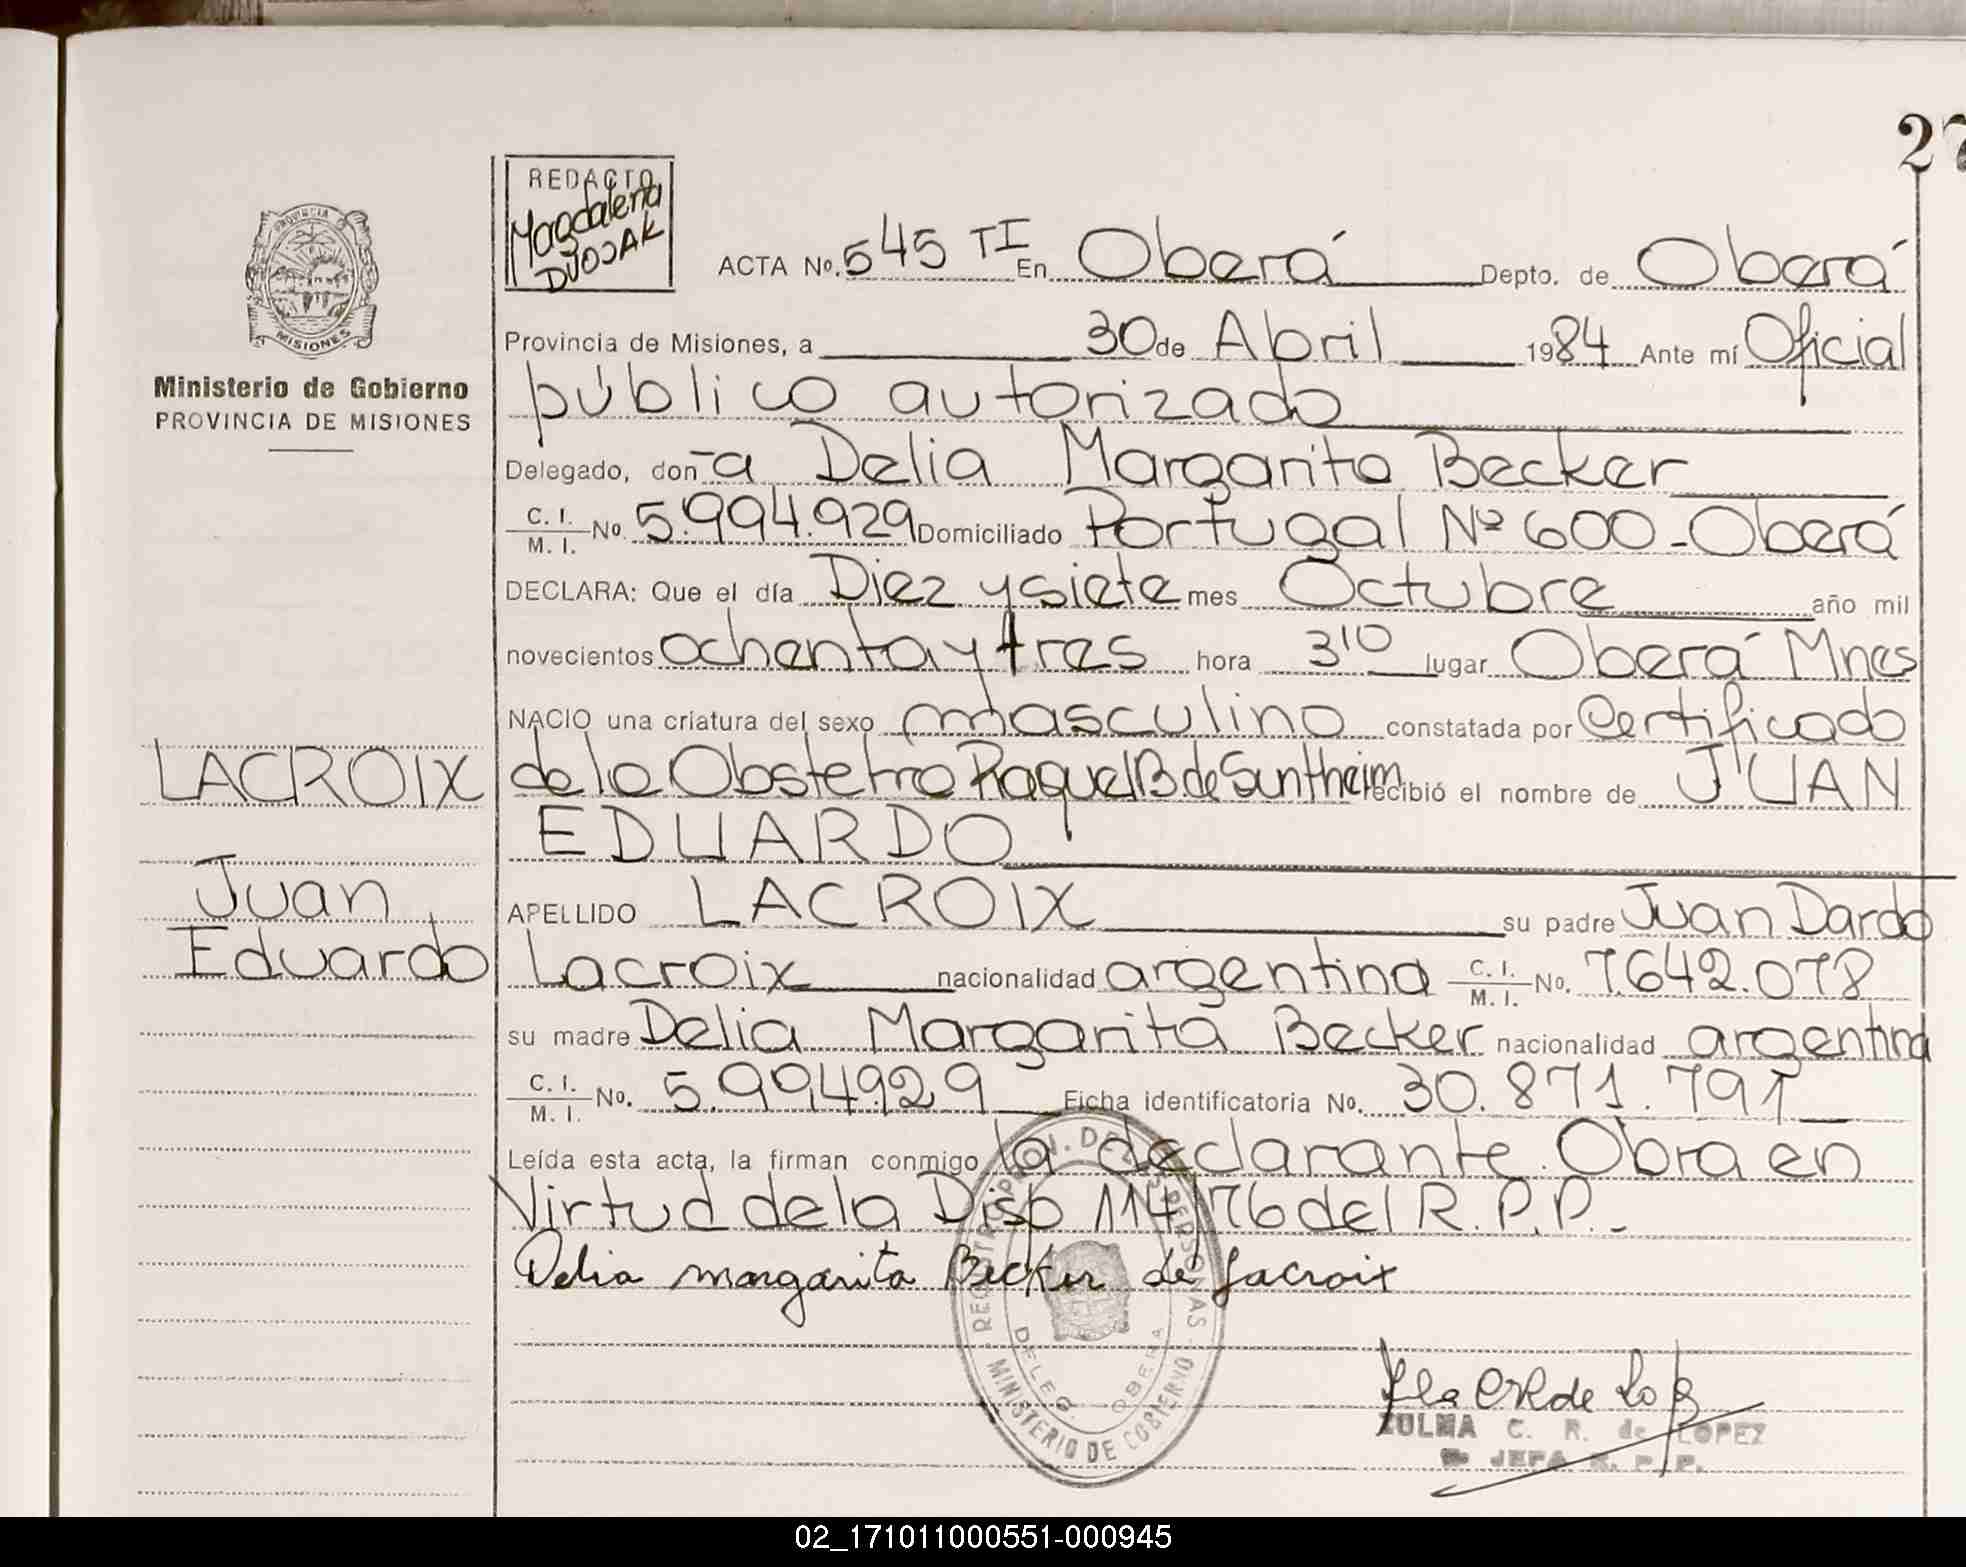 27
REDACTO
Magdalena
DUOJAK
PROVINCIA
MISIONES
Ministerio de Gobierno
PROVINCIA DE MISIONES
ACTA No. 545 TI En Oberá Depto. de Oberá
Provincia de Misiones, a 30 de Abril 1984 Ante mí Oficial
público autorizado
Delegado, don-a Delia Margarita Becker
C. I. / M. I. No. 5.994.929 Domiciliado Portugal Nº 600-Oberá
DECLARA: Que el día Diez y siete mes Octubre año mil
novecientos ochenta y tres hora 3'10 lugar Oberá Mnes
NACIO una criatura del sexo masculino constatada por Certificado
LACROIX
de la Obstetra Raquel B de Suntheim recibió el nombre de JUAN
EDUARDO
Juan
Eduardo
APELLIDO LACROIX su padre Juan Dardo
Lacroix nacionalidad argentina C. I. / M. I. No. 7.642.078
su madre Delia Margarita Becker nacionalidad argentina
C. I. / M. I. No. 5.994.929 Ficha identificatoria No. 30.871.791
Leída esta acta, la firman conmigo la declarante. Obra en
Virtud de la Disp 114/76 del R.P.P.-
Delia margarita Becker de Lacroix
REGISTRO PROV. DE LAS PERSONAS
DELEG. OBERA
MINISTERIO DE GOBIERNO
ZULMA C. R. de LOPEZ
JEFA R. P. P.
02_171011000551-000945